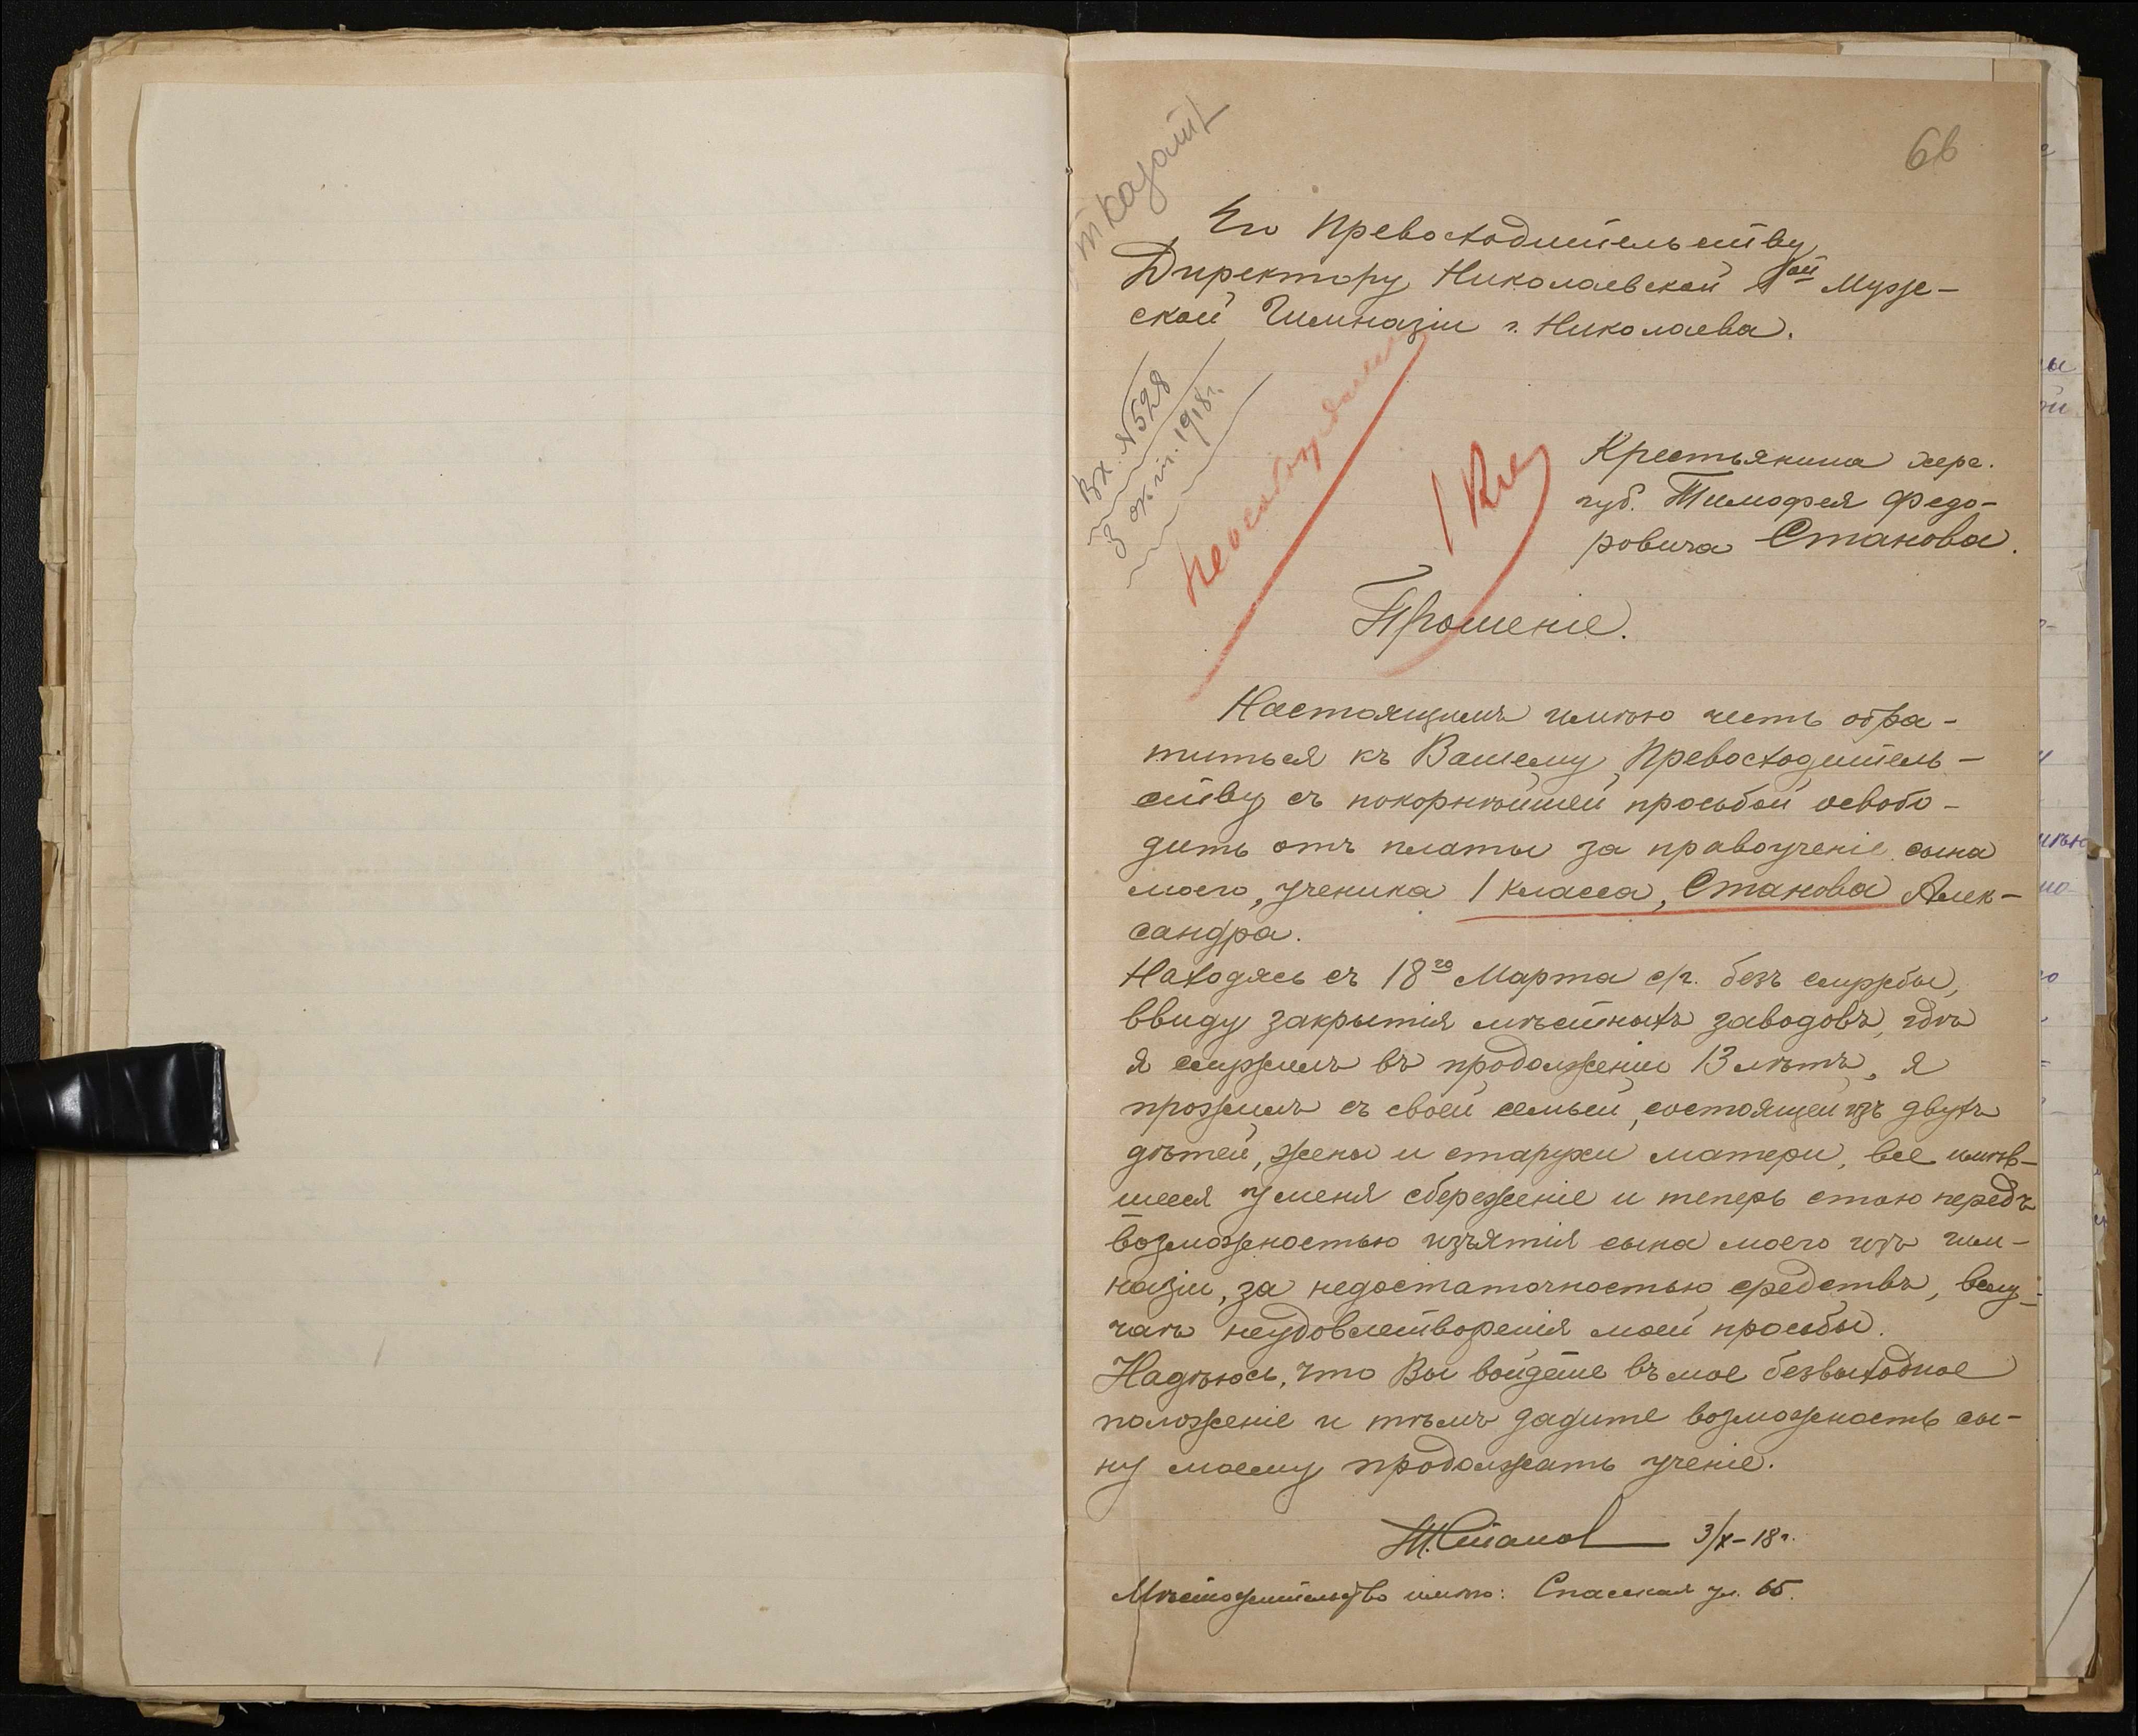 66
тказать
Его Превосходительству
Директору Николаевской 1ой Муж-
ской Гимназіи г. Николаева.
Вх. №528
3 окт. 1918 г.
1 кл
Крестьянина Херс.
губ. Тимофея Федо-
ровича Станова.
Прошеніе.
Настоящимъ имѣю честь обра-
титься къ Вашему Превосходитель-
ству съ покорнѣйшей просьбой освобо-
дить отъ платы за правоученіе сына
моего, ученика 1 класса, Станова Алек-
сандра.
Находясь съ 18го Марта с/г. безъ службы,
ввиду закрытія мѣстныхъ заводовъ, гдѣ
я служилъ въ продолженіи 13 лѣтъ, я
прожилъ съ своей семьей, состоящей изъ двухъ
дѣтей, жены и старухи матери, все имѣв-
шееся у меня сбереженіе и теперь стою передъ
возможностью изъятія сына моего изъ гим-
назіи, за недостаточностью средствъ, вслу-
чаѣ неудовлетворенія моей просьбы.
Надѣюсь, что Вы войдёте въ мое безвыходное
положеніе и тѣмъ дадите возможность сы-
ну моему продолжать ученіе.
Т. Станов 3/X-18 г.
Мѣстожительство имѣю: Спасская ул. 65.